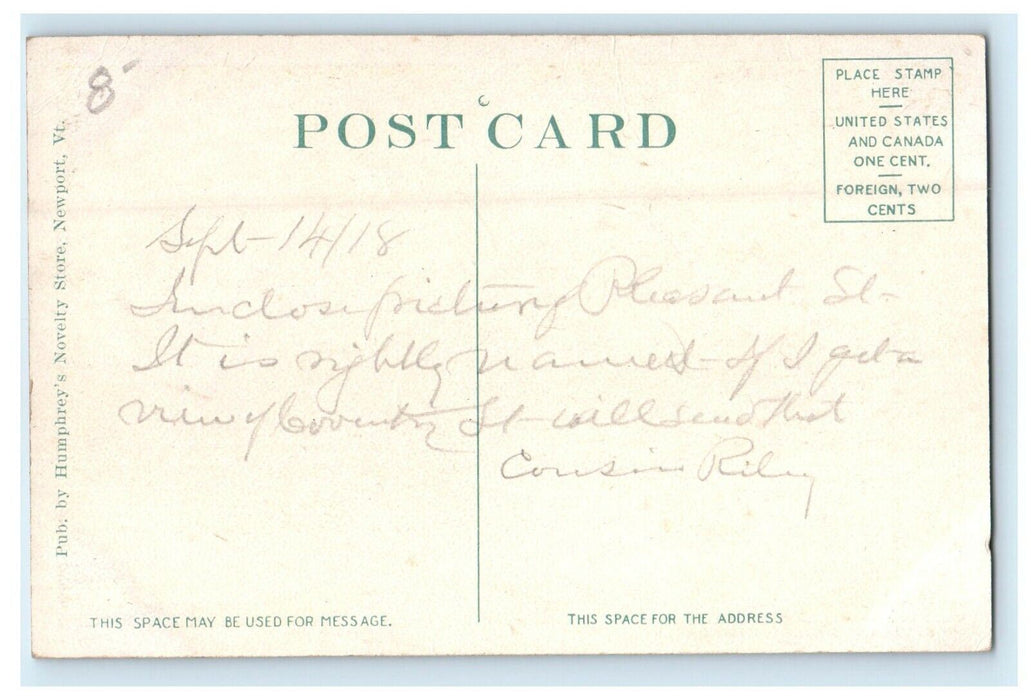 8-
Pub. by Humphrey's Novelty Store, Newport, Vt.
POST CARD
PLACE STAMP
HERE
UNITED STATES
AND CANADA
ONE CENT.
FOREIGN, TWO
CENTS
Sept-14/18
I inclose picture of Pleasant St-
It is rightly named- If I get a
view of Coventry St- will send that
Cousin Riley
THIS SPACE MAY BE USED FOR MESSAGE.
THIS SPACE FOR THE ADDRESS